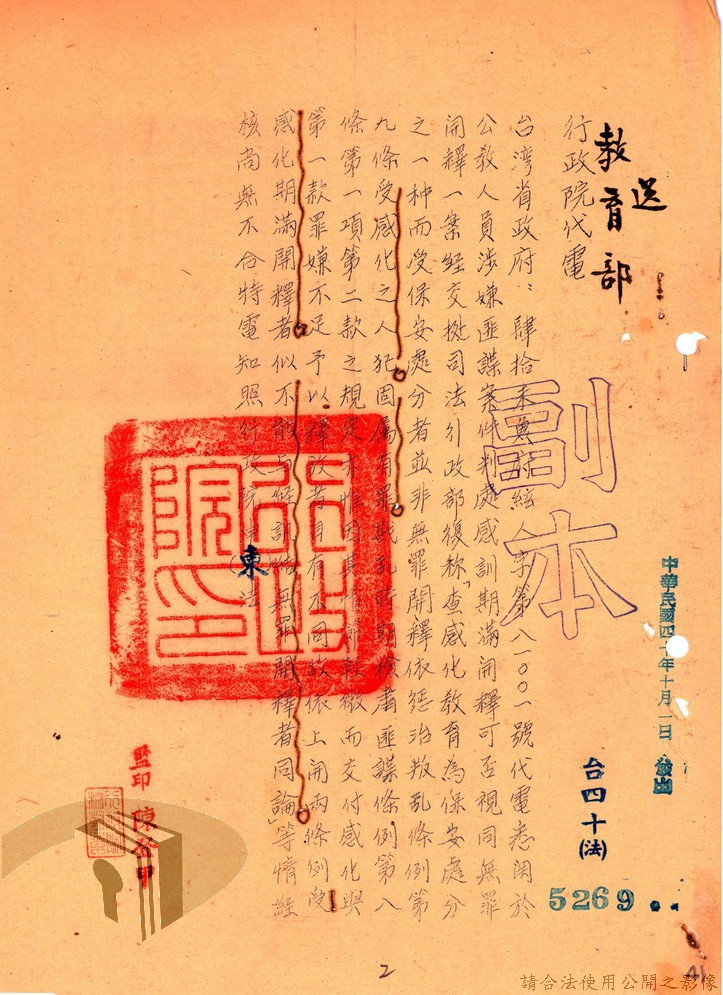 送
教育部
副本
行政院代電
台灣省政府：肆拾未真府綜人字第八一〇〇一號代電悉関於
公教人員涉嫌匪諜案件判處感訓期滿開釋可否視同無罪
開釋一案経交拠司法行政部復称「查感化教育為保安處分
之一种而受保安處分者並非無罪開釋依惩治叛乱條例第
九條受感化之人犯固属有罪戡乱時期檢肅匪諜條例第八
條第一項第二款之規定亦惟因其情節輕微而交付感化與
第一款罪嫌不足予以釋放者自有不同故依上開兩條例受
感化期滿開釋者似不能與経訊結無罪開釋者同論」等情経
核尚無不合特電知照行政院 東 法
行政院印
中華民國四十年十月一日 發出
台四十(法)
5269
監印 陳
2
41
請合法使用公開之影像